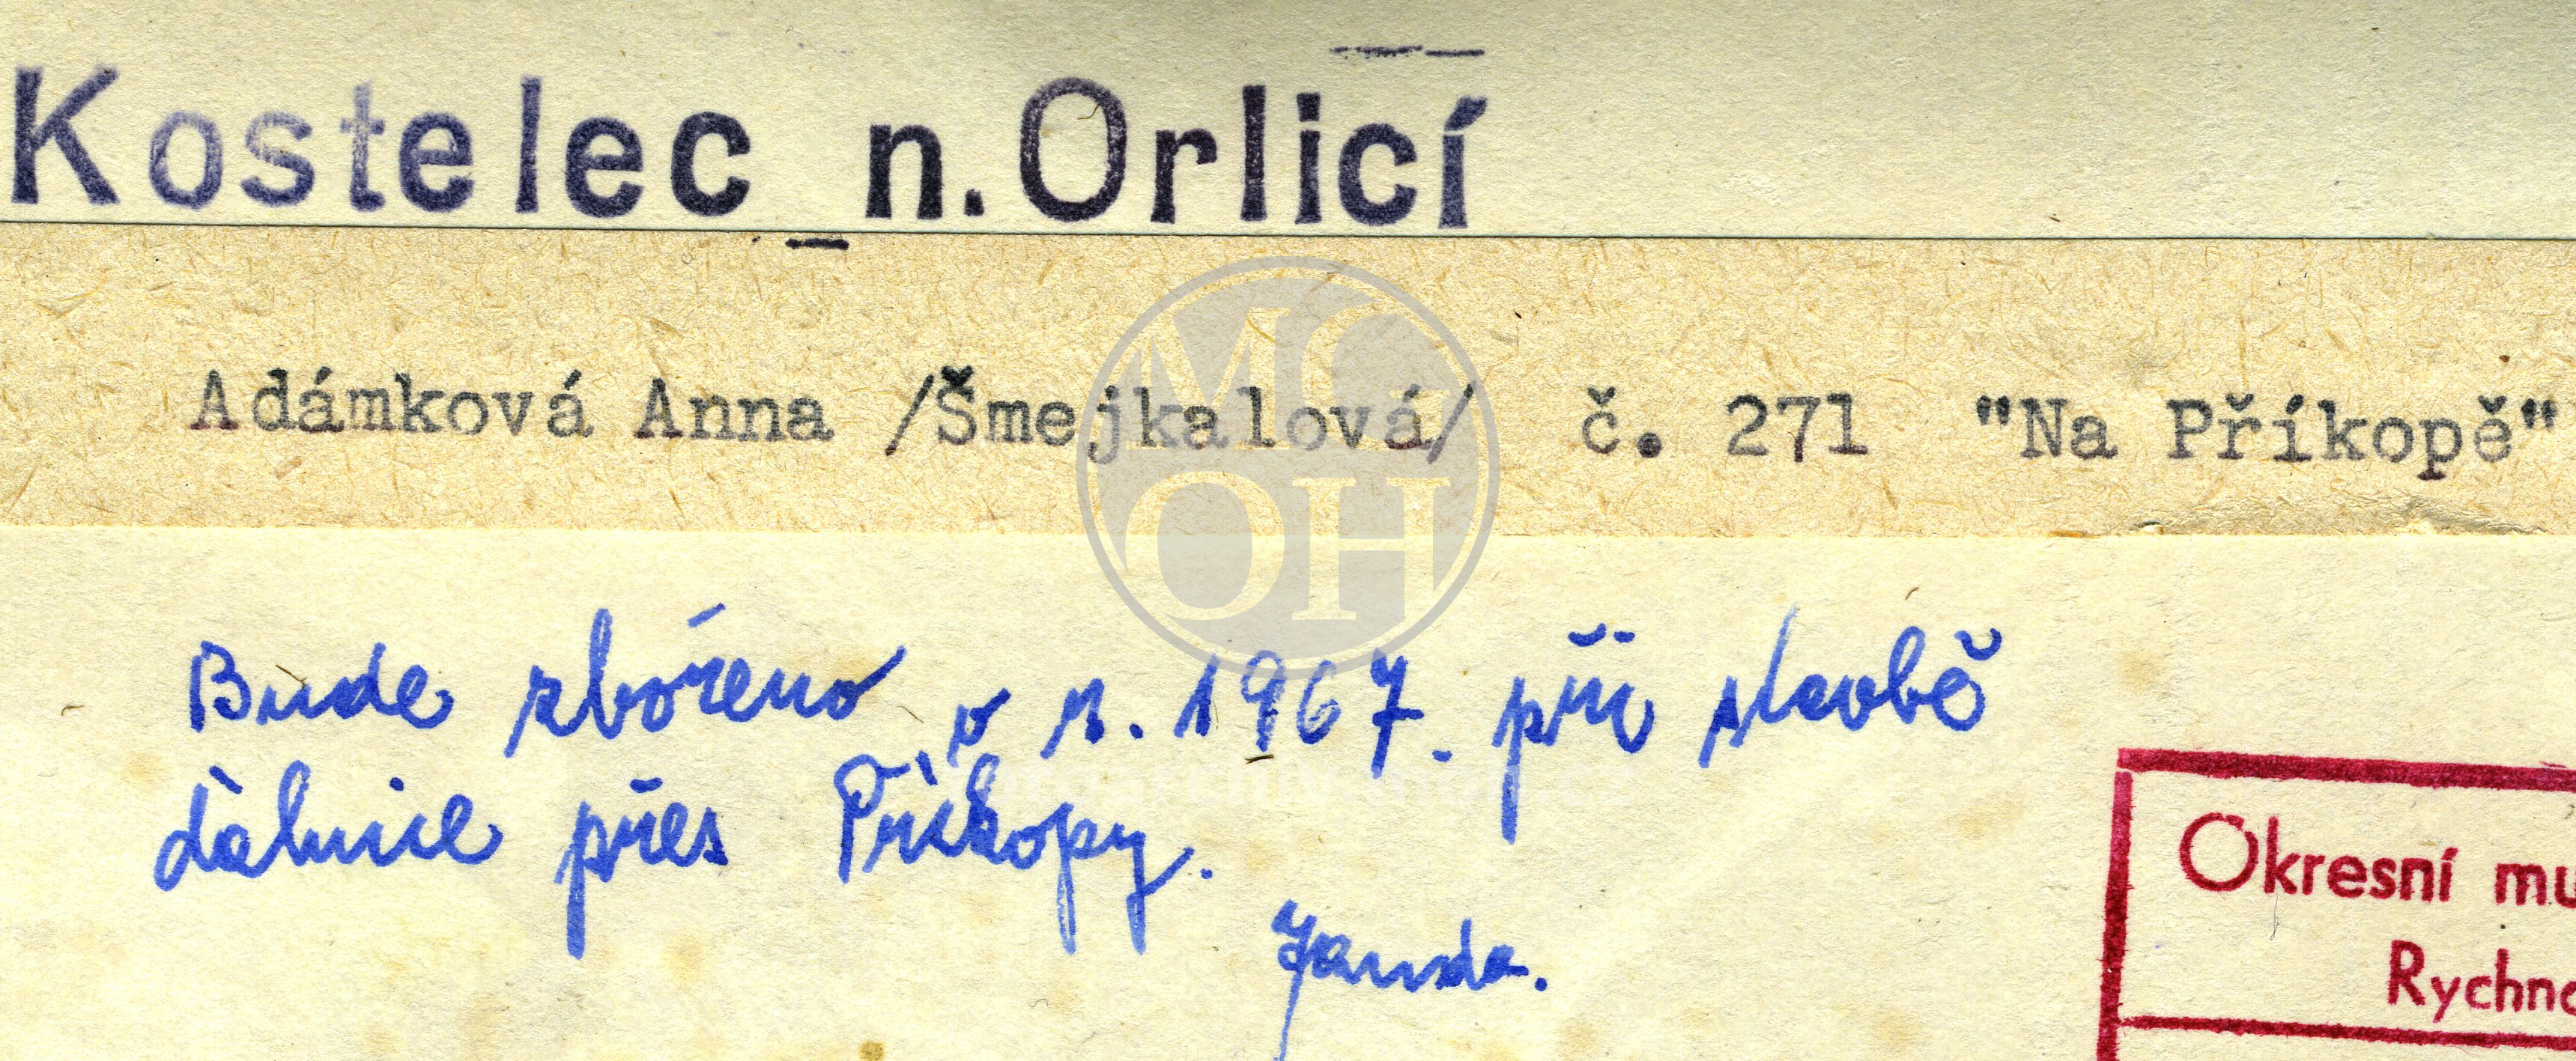 Kostelec n. Orlicí
Adámková Anna /Šmejkalová/ č. 271 "Na Příkopě"
MG
OH
Bude zbořeno v r. 1967. při stavbě
dálnice přes Příkopy.
Janda.
Okresní mu
Rychno